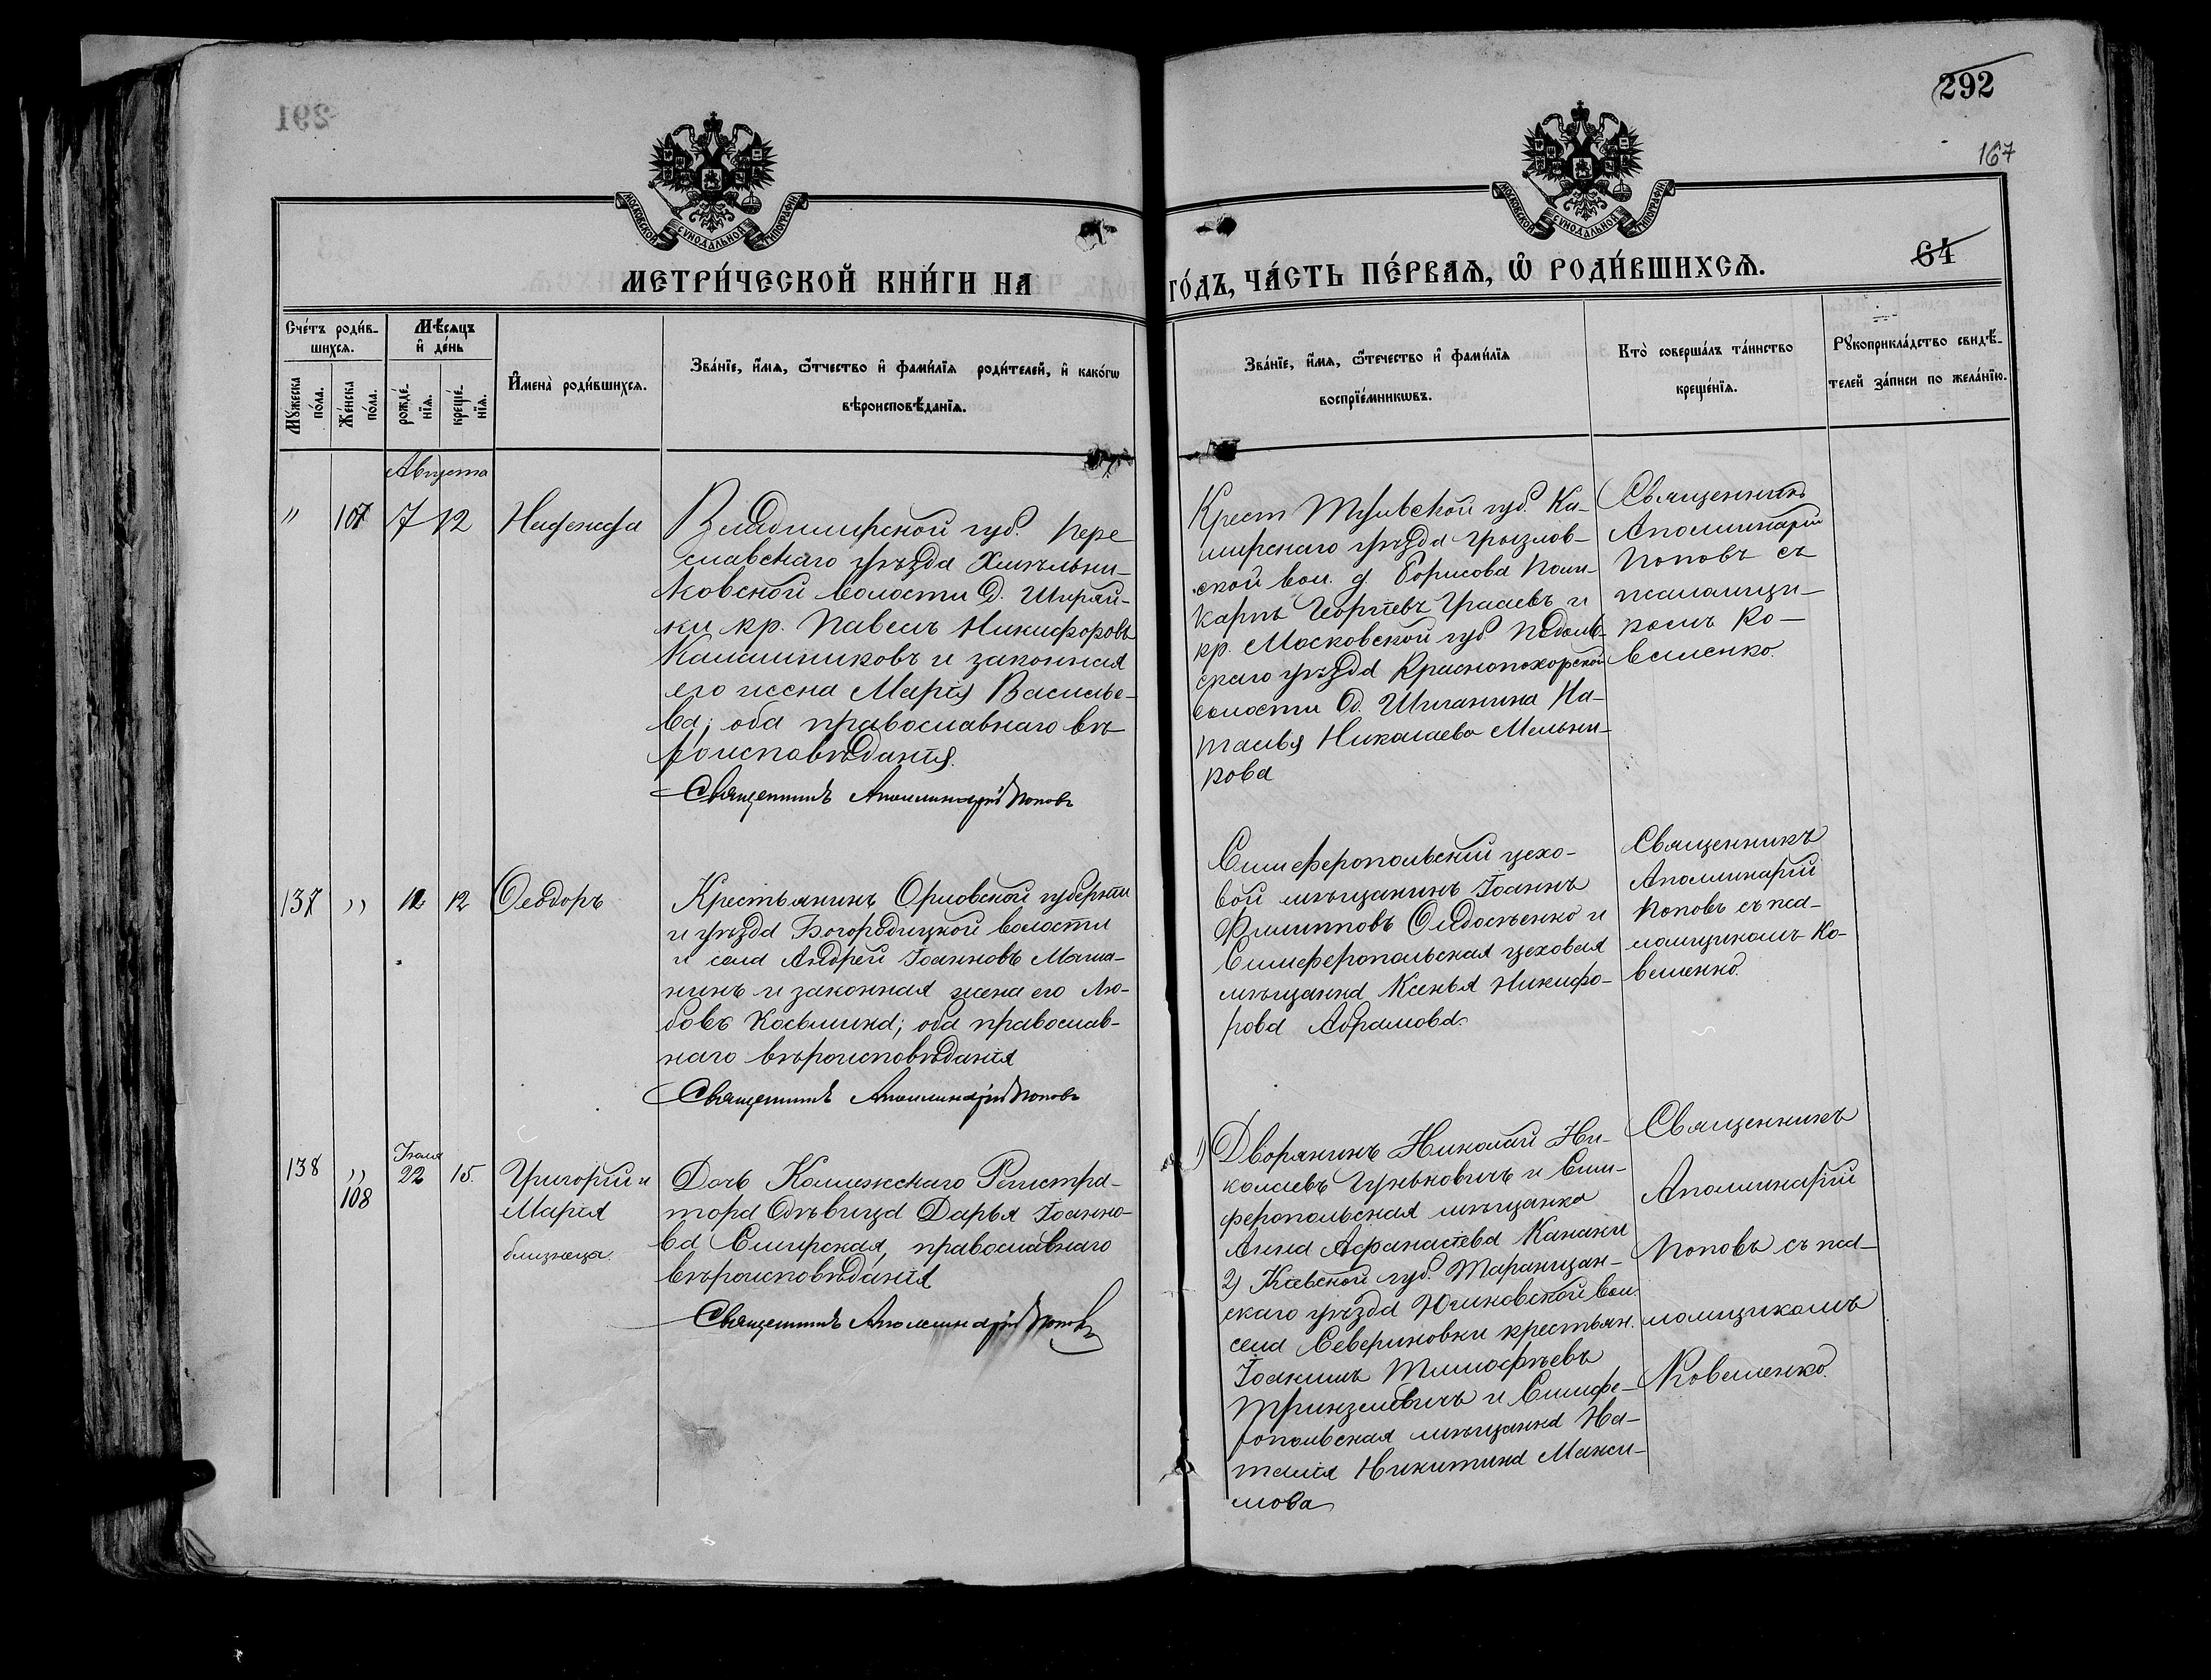 292
167
291
МОСКОВСКОЙ СУНОДАЛЬНОЙ ТИПОГРАФІИ
МОСКОВСКОЙ СУНОДАЛЬНОЙ ТИПОГРАФІИ
МЕТРИ́ЧЕСКОЙ КНИ́ГИ НА
ГО́ДЪ, ЧА́СТЬ ПЕ́РВАѦ, Ѡ҆ РОДИ́ВШИХСѦ.
64
Сче́тъ роди́в-
шихсѧ.
Мꙋжеска
по́ла.
Же́нска
по́ла.
Мѣ́сѧцъ
и҆ де́нь
рожде́-
нїѧ.
креще́-
нїѧ.
И҆мена̀ роди́вшихсѧ.
Зва́нїе, и҆́мѧ, ѻ҆́тчество и҆ фами́лїѧ роди́телей, и҆ како́гѡ
вѣроисповѣ́данїѧ.
Зва́нїе, и҆́мѧ, ѻ҆те́чество и҆ фами́лїѧ
воспрїе́мникѡвъ.
Кто̀ соверша́лъ та́инство
креще́нїѧ.
Рꙋкоприкла́дство свидѣ́-
телей за́писи по жела́нїю.
Августа
" 107 7 12 Надежда
Владимирской губ. Пере
славскаго уѣзда Хмѣльни-
ковской волости д. Ширяй-
ки кр. Павелъ Никифоровъ
Калашниковъ и законная
его жена Марія Василье-
ва; оба православнаго вѣ-
роисповѣданія.
Священникъ Аполлинарій Поповъ
Крест Тульской губ. Ка-
ширскаго уѣзда
ской вол. д Борисова Поли-
карпъ Георгіевъ и
кр. Московской губ Подоль-
скаго уѣзда Краснопахорской
волости д. Шиганина На-
талья Николаева Мельни-
кова
Священникъ
Аполлинарій
Поповъ съ
псаломщи-
комъ Ко-
веленко.
137 " 12 12 Ѳеодоръ
Крестьянинъ Орловской губерніи
и уѣзда Богородицкой волости
и села Андрей Іоанновъ
нинъ и законная жена его Лю-
бовь Косьмина; оба православ-
наго вѣроисповѣданія
Священникъ Аполлинарій Поповъ
Симферопольскій цехо-
вой мѣщанинъ Іоаннъ
Филипповъ и
Симферопольская цеховая
мѣщанка Ксенья Никифо-
рова Абрамова.
Священникъ
Аполлинарій
Поповъ съ пса-
ломщикомъ Ко-
веленко.
138 " 108 Іюля 22 15. Григорій и
Марія
близнецы.
Дочь Коллежскаго Регистра-
тора дѣвица Дарья Іоанно-
ва Смирская, православнаго
вѣроисповѣданія
Священникъ Аполлинарій Поповъ
1) Дворянинъ Николай Ни-
колаевъ и Сим-
феропольская мѣщанка
Анна Афанасіева Канаки
2) Кіевской губ. Таращан-
скаго уѣзда Юшковской вол.
села Севериновки крестьян.
Іоакимъ Тимофѣевъ
и Симфе-
ропольская мѣщанка На-
талія Никитина Макси-
мова
Священникъ
Аполлинарій
Поповъ съ пса-
ломщикомъ
Ковеленко.